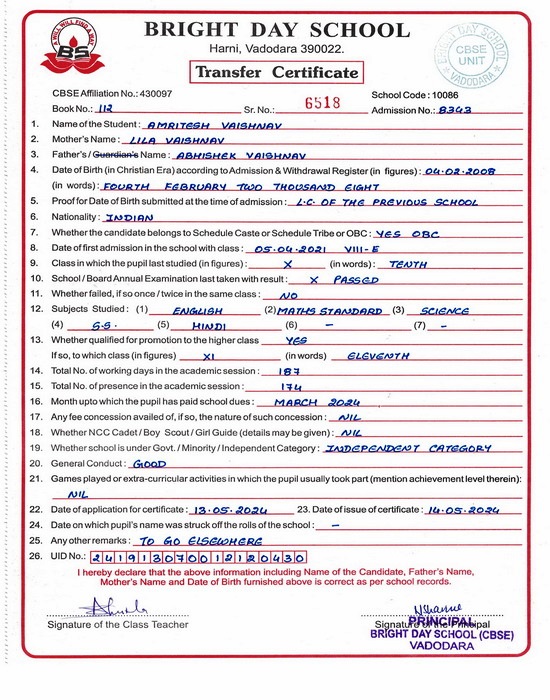 A WILL WILL FIND A WAY
BS
BRIGHT DAY SCHOOL
Harni, Vadodara 390022.
Transfer Certificate
BRIGHT DAY SCHOOL
CBSE
UNIT
VADODARA
CBSE Affiliation No.: 430097 School Code : 10086
Book No.: 112 Sr. No.: 6518 Admission No.: 8343
1. Name of the Student : AMRITESH VAISHNAV
2. Mother's Name : LILA VAISHNAV
3. Father's / Guardian's Name : ABHISHEK VAISHNAV
4. Date of Birth (in Christian Era) according to Admission & Withdrawal Register (in figures) : 04.02.2008
(in words) : FOURTH FEBRUARY TWO THOUSAND EIGHT
5. Proof for Date of Birth submitted at the time of admission : L.C. OF THE PREVIOUS SCHOOL
6. Nationality : INDIAN
7. Whether the candidate belongs to Schedule Caste or Schedule Tribe or OBC : YES OBC
8. Date of first admission in the school with class : 05.04.2021 VIII-E
9. Class in which the pupil last studied (in figures) : X (in words) : TENTH
10. School / Board Annual Examination last taken with result : X PASSED
11. Whether failed, if so once / twice in the same class : NO
12. Subjects Studied : (1) ENGLISH (2) MATHS STANDARD (3) SCIENCE
(4) S.S. (5) HINDI (6) - (7) -
13. Whether qualified for promotion to the higher class YES
If so, to which class (in figures) XI (in words) ELEVENTH
14. Total No. of working days in the academic session : 187
15. Total No. of presence in the academic session : 174
16. Month upto which the pupil has paid school dues : MARCH 2024
17. Any fee concession availed of, if so, the nature of such concession : NIL
18. Whether NCC Cadet / Boy Scout / Girl Guide (details may be given) : NIL
19. Whether school is under Govt. / Minority / Independent Category : INDEPENDENT CATEGORY
20. General Conduct : GOOD
21. Games played or extra-curricular activities in which the pupil usually took part (mention achievement level therein):
NIL
22. Date of application for certificate : 13.05.2024 23. Date of issue of certificate : 14.05.2024
24. Date on which pupil's name was struck off the rolls of the school : -
25. Any other remarks : TO GO ELSEWHERE
26. UID No.: 241913070012120430
I hereby declare that the above information including Name of the Candidate, Father's Name,
Mother's Name and Date of Birth furnished above is correct as per school records.
Signature of the Class Teacher Signature of the Principal
PRINCIPAL
BRIGHT DAY SCHOOL (CBSE)
VADODARA